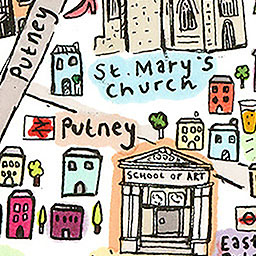 Putney
St. Mary's
Church
Putney
SCHOOL OF ART
East